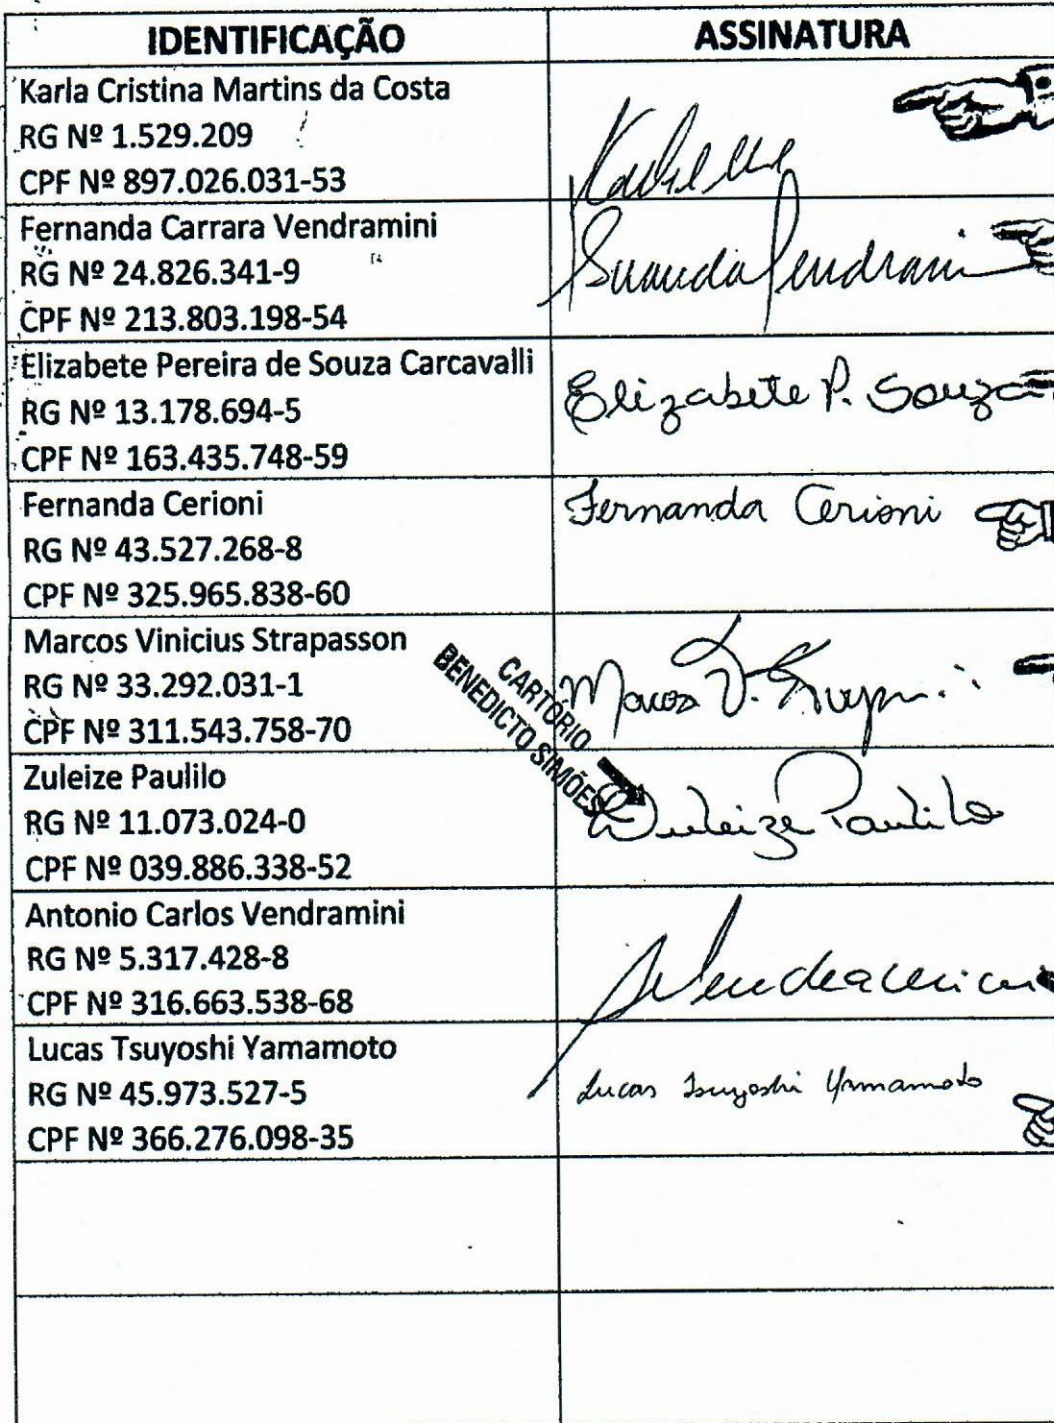 IDENTIFICAÇÃO
ASSINATURA
Karla Cristina Martins da Costa
RG Nº 1.529.209
CPF Nº 897.026.031-53
Fernanda Carrara Vendramini
RG Nº 24.826.341-9
CPF Nº 213.803.198-54
Elizabete Pereira de Souza Carcavalli
RG Nº 13.178.694-5
CPF Nº 163.435.748-59
Elizabete P. Souza
Fernanda Cerioni
RG Nº 43.527.268-8
CPF Nº 325.965.838-60
Fernanda Cerioni
Marcos Vinicius Strapasson
RG Nº 33.292.031-1
CPF Nº 311.543.758-70
Marcos V.
CARTÓRIO
BENEDICTO SIMÕES
Zuleize Paulilo
RG Nº 11.073.024-0
CPF Nº 039.886.338-52
Zuleize Paulilo
Antonio Carlos Vendramini
RG Nº 5.317.428-8
CPF Nº 316.663.538-68
Lucas Tsuyoshi Yamamoto
RG Nº 45.973.527-5
CPF Nº 366.276.098-35
Lucas Tsuyoshi Yamamoto